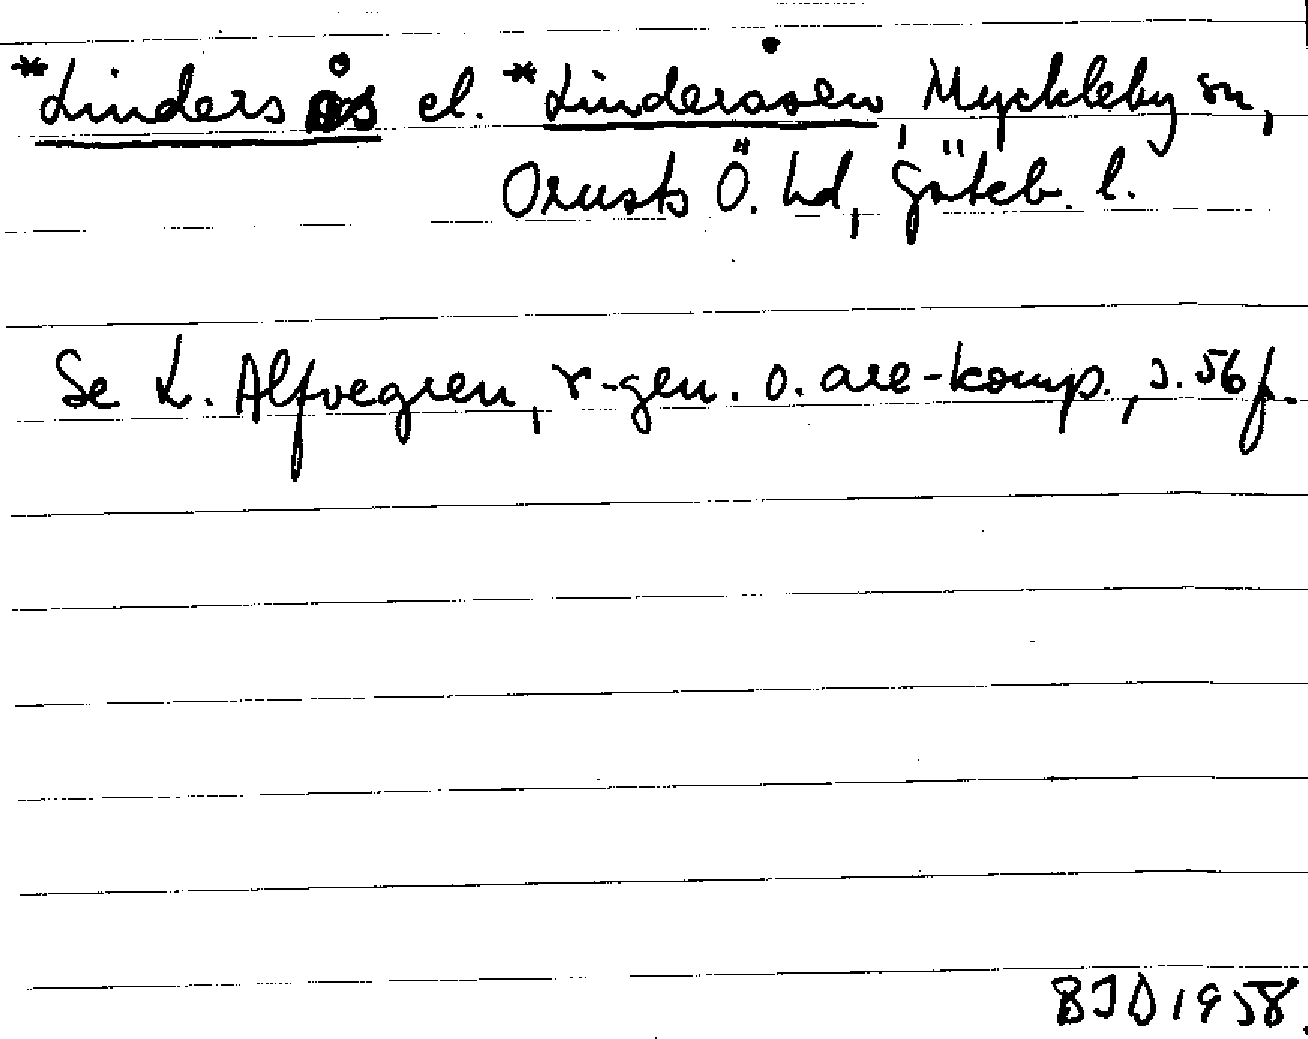 *Linders ås el. *Linderåsen, Myckleby sn,
Orusts Ö. hd, Göteb. l.
Se L. Alfvegren, r-gen. o. are-komp., s. 56 f.
BJD 1958.